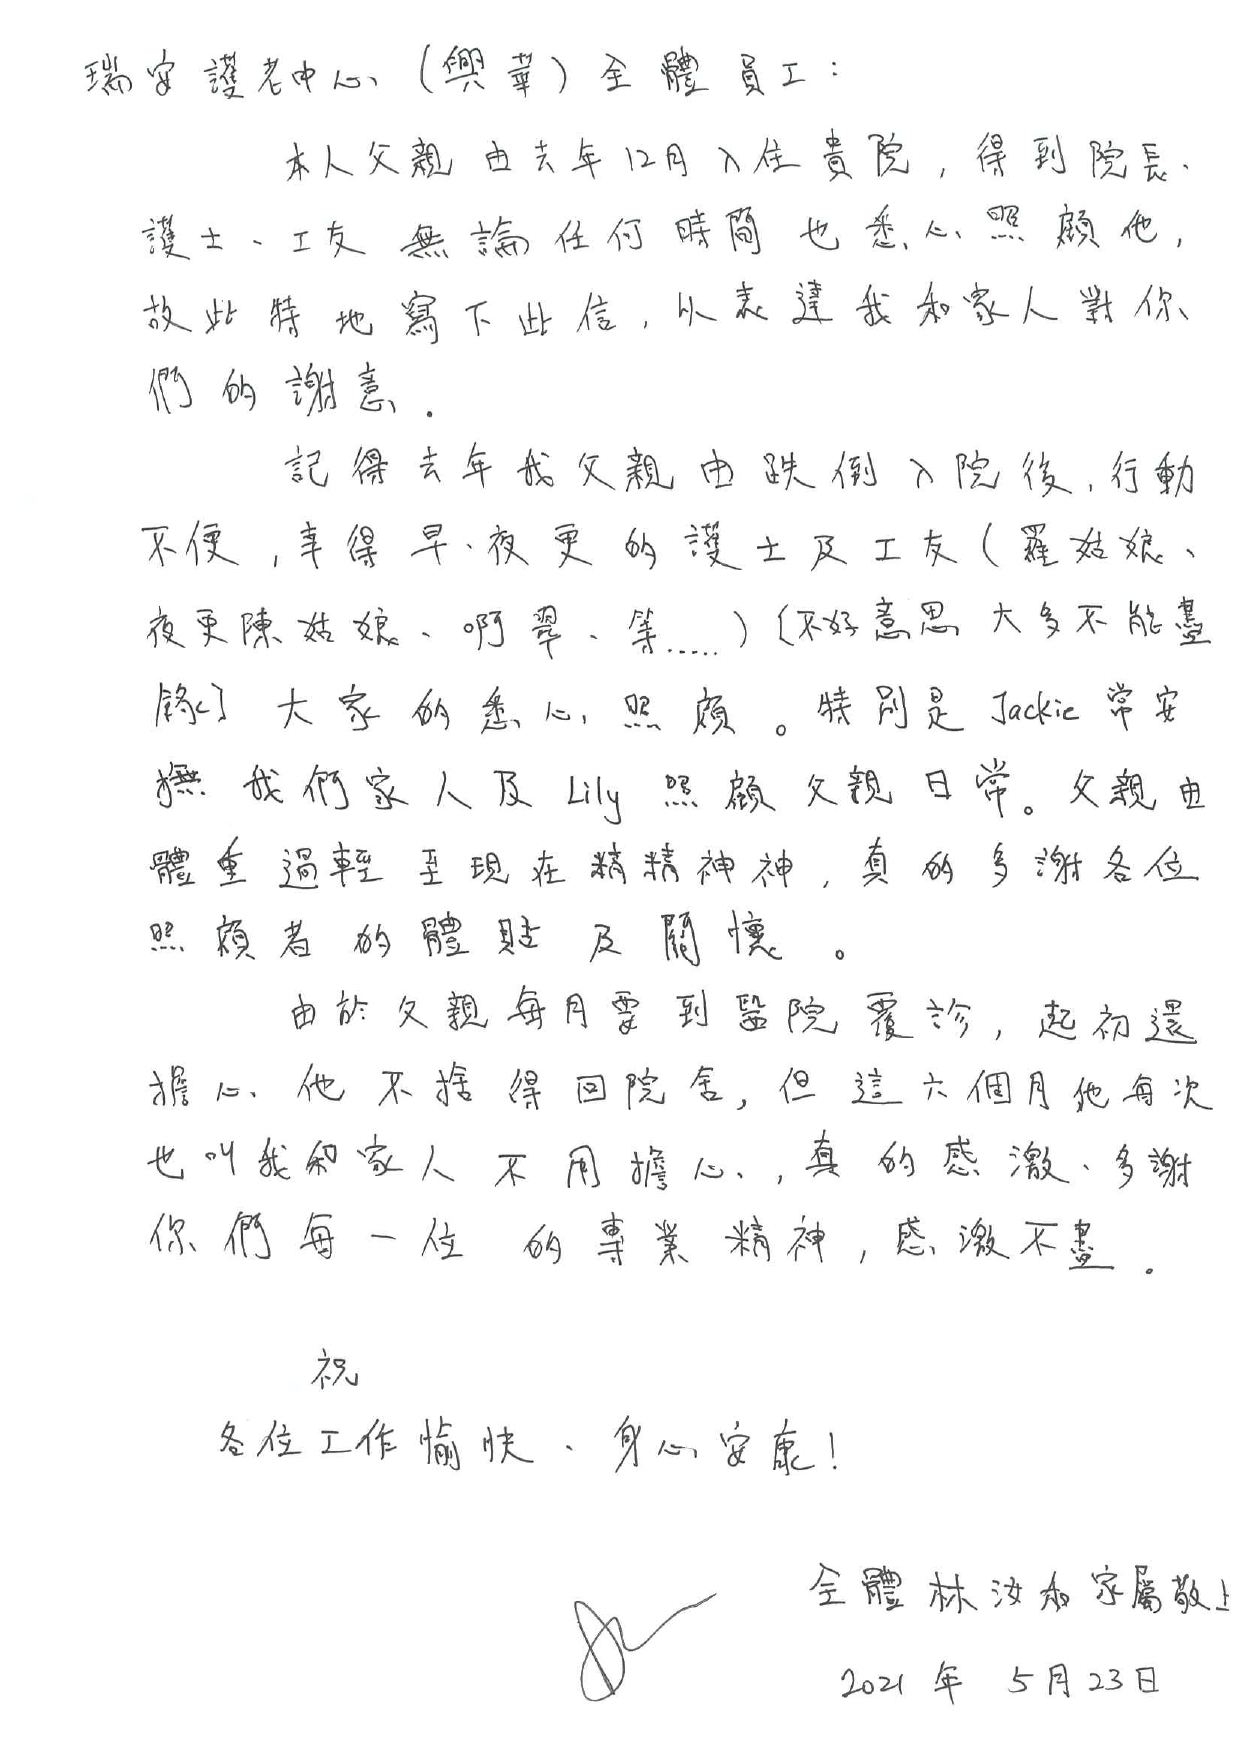 瑞安護老中心（興華）全體員工：
本人父親由去年12月入住貴院，得到院長、
護士、工友無論任何時間也悉心照顧他，
故此特地寫下此信，以表達我和家人對你
們的謝意．
記得去年我父親由跌倒入院後，行動
不便，幸得早、夜更的護士及工友（羅姑娘、
夜更陳姑娘、啊翠、等.....）〔不好意思大多不能盡
錄〕大家的悉心照顧。特別是Jackie常安
撫我們家人及Lily照顧父親日常。父親由
體重過輕至現在精精神神，真的多謝各位
照顧者的體貼及關懷。
由於父親每月要到醫院覆診，起初還
擔心他不捨得回院舍，但這六個月他每次
也叫我和家人不用擔心，真的感激、多謝
你們每一位的專業精神，感激不盡．
祝
各位工作愉快、身心安康！
全體林汝和家屬敬上
2021年5月23日